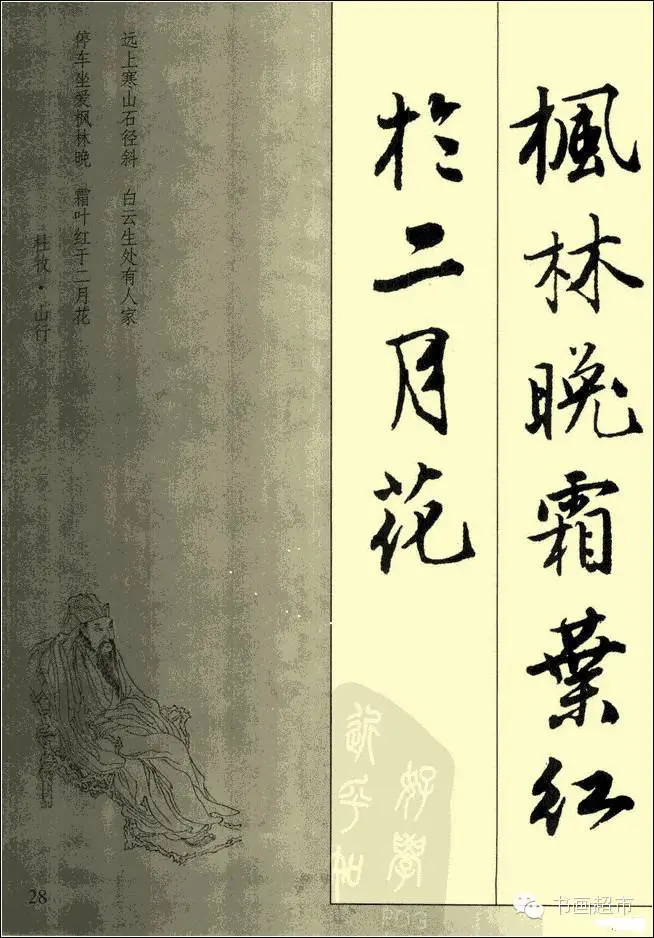 楓林晚霜葉红
於二月花
远上寒山石径斜 白云生处有人家
停车坐爱枫林晚 霜叶红于二月花
杜牧·山行
好學
近乎知
28
PDG
书画超市